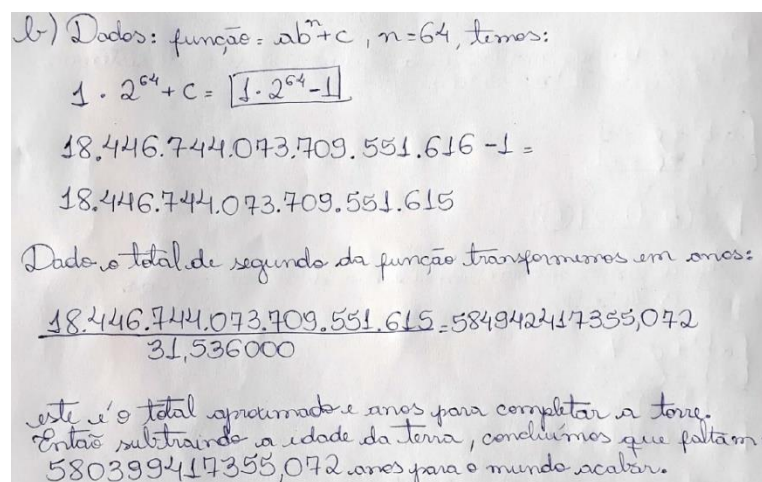 b) Dados: função = abⁿ + c, n = 64, temos:
1 · 2⁶⁴ + c = 1 · 2⁶⁴ - 1
18.446.744.073.709.551.616 - 1 =
18.446.744.073.709.551.615
Dado o total de segundo da função transformemos em anos:
18.446.744.073.709.551.615 = 584942417355,072
31,536000
este é o total aproximado e anos para completar a torre.
Então subtraindo a idade da terra, concluímos que faltam
580399417355,072 anos para o mundo acabar.